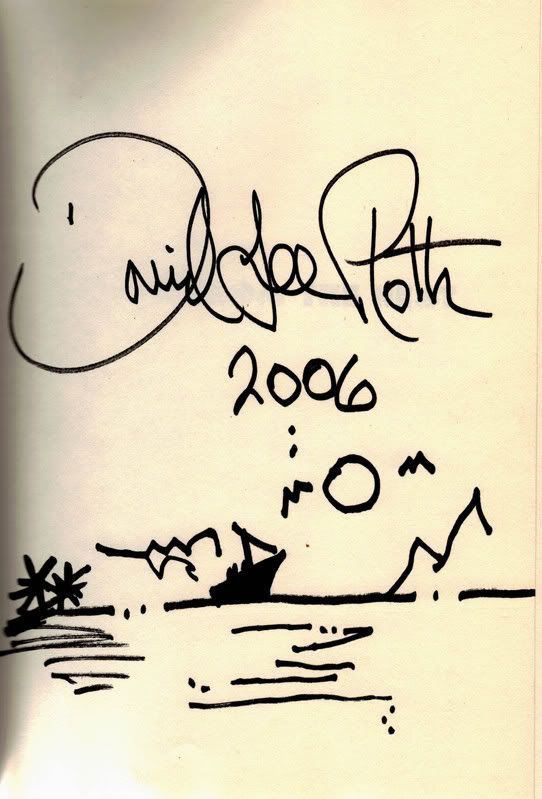 David Lee Roth
2006